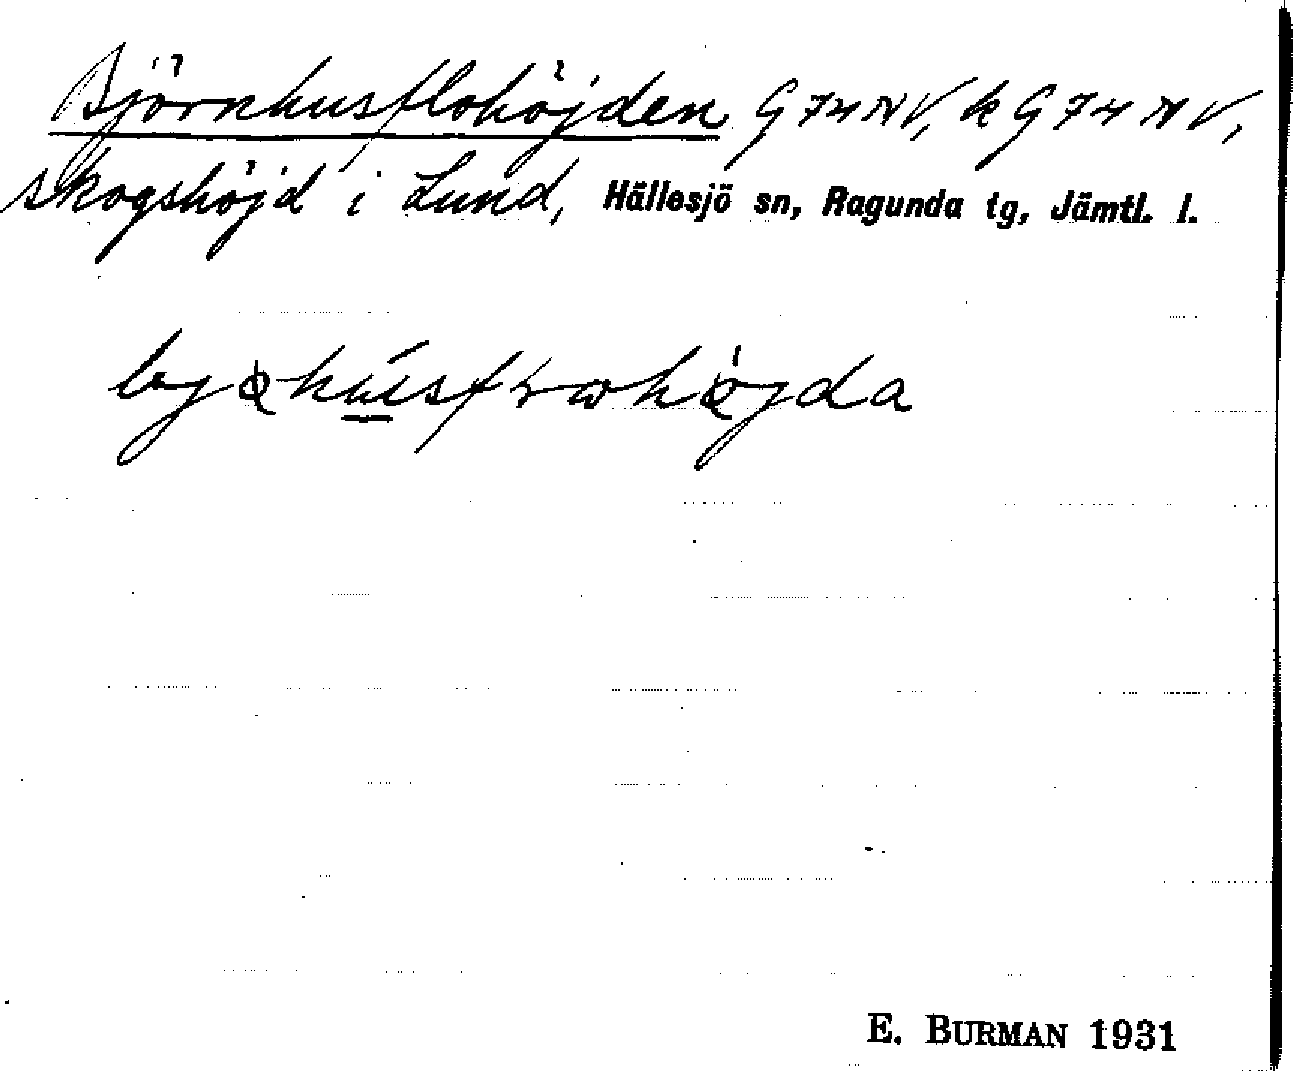 Björnhusflohöjden G74NV, k G74NV,
skogshöjd i Lund, Hällesjö sn, Ragunda tg, Jämtl. l.
E. BURMAN 1931